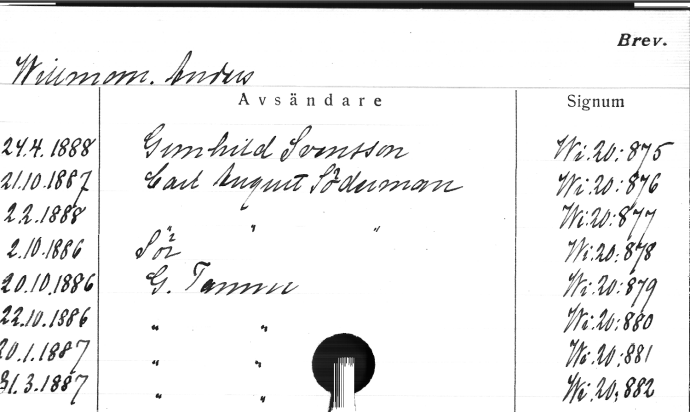 Brev.
Willman. Anders
Avsändare Signum
24.4.1888 Gunhild Svensson Wi:20:875
21.10.1887 Carl August Söderman Wi:20:876
2.2.1888 " " Wi:20:877
2.10.1886 Wi:20:878
20.10.1886 G. Tamm Wi:20:879
22.10.1886 " " Wi:20:880
20.1.1887 " " Wi:20:881
31.3.1887 " " Wi:20:882